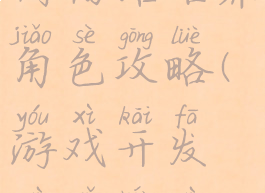 jiǎo sè gōng lüè
角色攻略(
yóu xì kāi fā
游戏开发